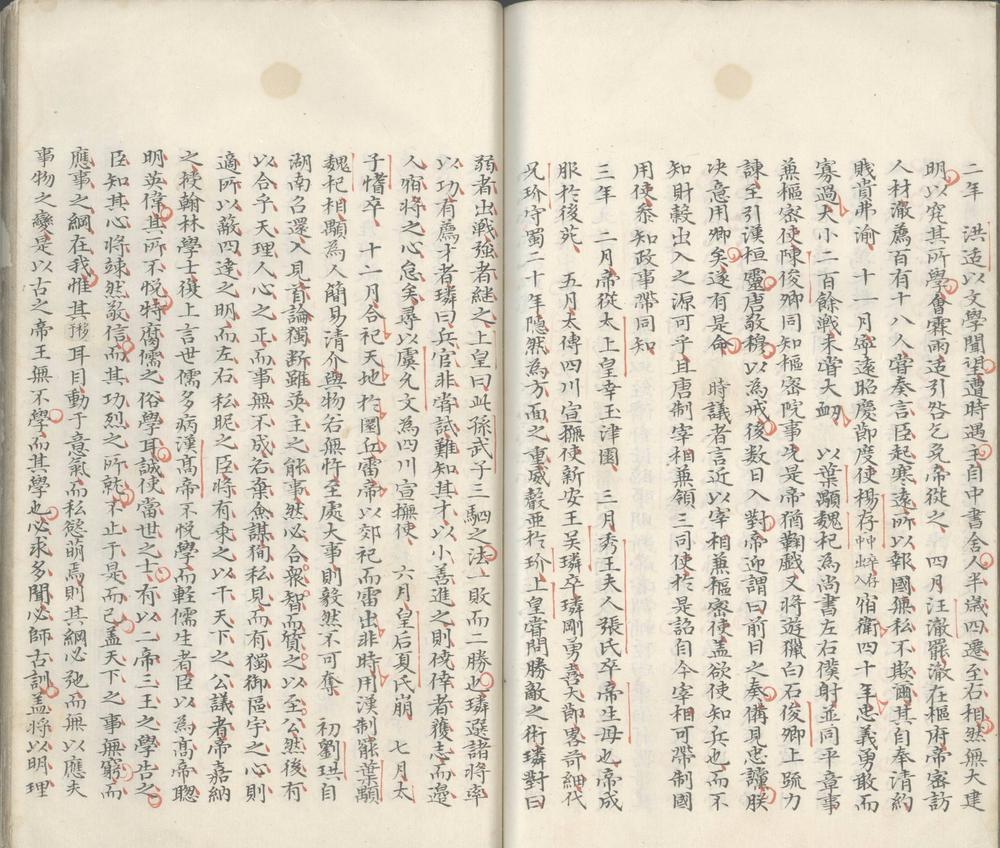 二年　洪造以文學聞望遭時遇主自中書舍人半歲四遷至右相然無大建
明以究其所學會霖雨造引咎乞免帝從之　四月汪澈罷澈在樞府帝密訪
人材澈薦百有十八人嘗奏言臣起寒遠所以報國無私不欺爾其自奉清約
賤貴弗渝　十一月寧遠昭慶節度使楊存中卒存入宿衛四十年忠義勇敢而
寡過大小二百餘戰未嘗大衂　以葉顒魏杞為尚書左右僕射並同平章事
兼樞密使陳俊卿同知樞密院事先是帝猶鞠戲又將遊獵白石俊卿上疏力
諫至引漢桓靈唐敬穆以為戒後數日入對帝迎謂曰前日之奏備見忠讜朕
决意用卿矣遂有是命　時議者言近以宰相兼樞密使盖欲使知兵也而不
知財穀出入之源可乎且唐制宰相兼領三司使於是詔自今宰相可帶制國
用使叅知政事帶同知
三年　二月帝從太上皇幸玉津園　三月秀王夫人張氏卒帝生母也帝成
服於後苑　五月太傅四川宣撫使新安王吳璘卒璘剛勇喜大節畧苛細代
兄玠守蜀二十年隠然為方面之重威聲亞於玠上皇嘗問勝敵之術璘對曰
弱者出戰強者継之上皇曰此孫武子三駟之法一敗而二勝也璘選諸將率
以功有薦才者璘曰兵官非嘗試難知其才以小善進之則僥倖者獲志而邉
人宿將之心怠矣尋以虞允文為四川宣撫使　六月皇后夏氏崩　七月太
子愭卒　十一月合祀天地於圜丘雷帝以郊祀而雷出非時用漢制罷葉顒
魏杞相顒為人簡易清介與物若無忤至處大事則毅然不可奪　初劉珙自
湖南召還入見首論獨断雖英主之能事然必合衆智而質之以至公然後有
以合乎天理人心之正而事無不成若棄僉謀徇私見而有獨御區宇之心則
適所以蔽四達之明而左右私昵之臣將有乗之以干天下之公議者帝嘉納
之授翰林學士復上言世儒多病漢髙帝不悦學而輕儒生者臣以為髙帝聦
明英偉其所不悦特腐儒之俗學耳誠使當世之士有以二帝三王之學告之
臣知其心將竦然敬信而其功烈之所就不止于是而已盖天下之事無窮而
應事之綱在我惟其耳目動于意氣而私慾萌焉則其綱必弛而無以應夫
事物之變是以古之帝王無不學而其學也必求多聞必師古訓盖將以明理